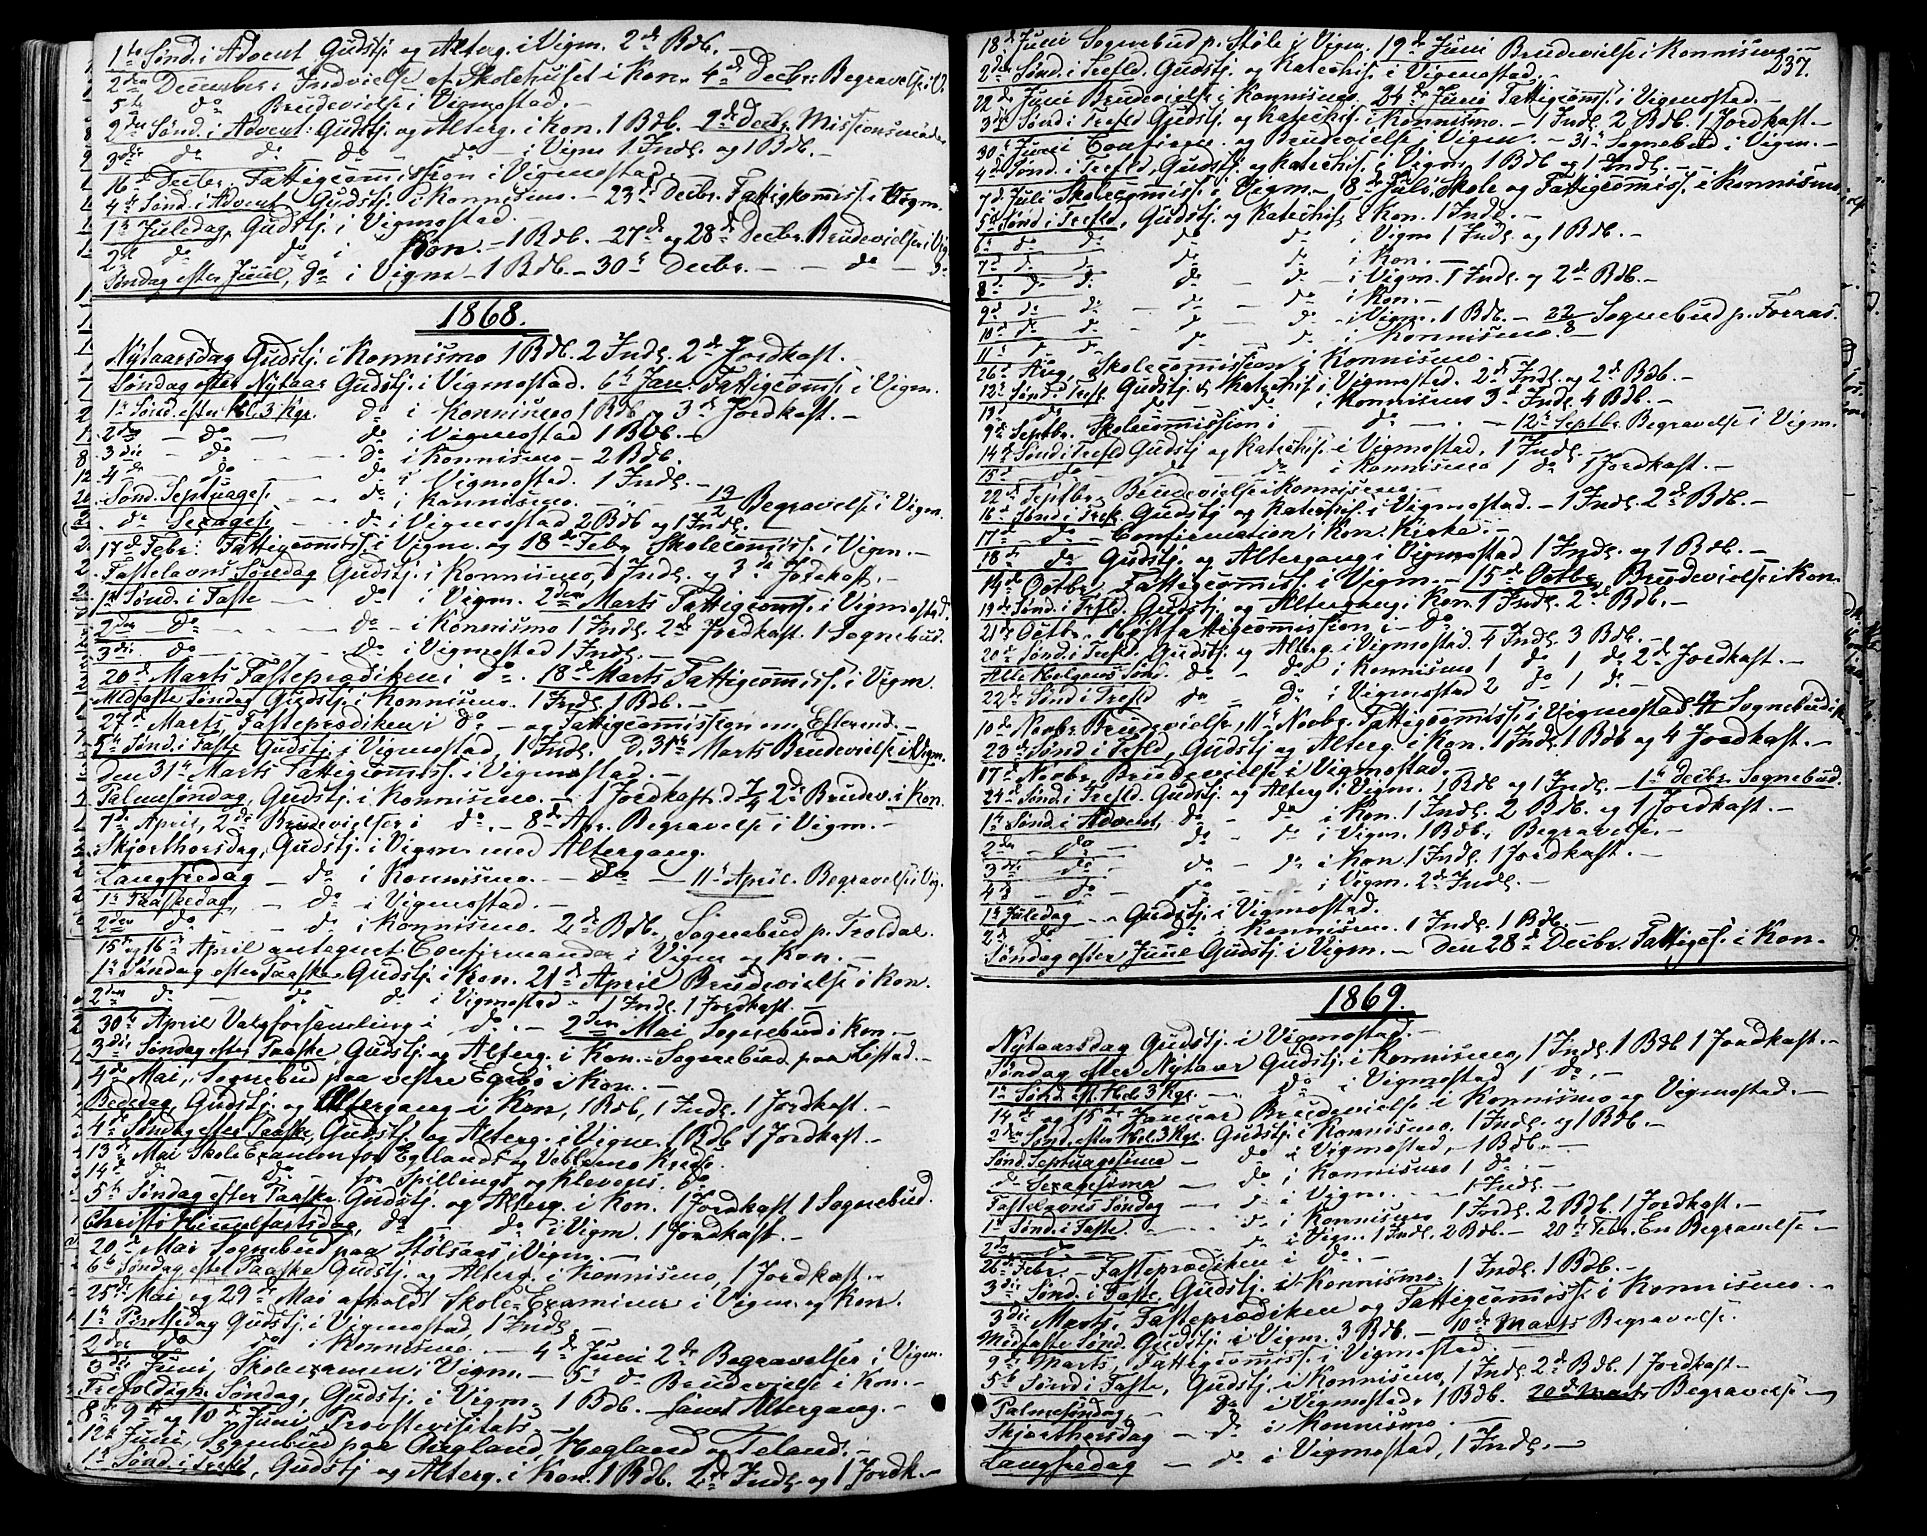 1ste Sønd. i Advent Gudstj. og Alterg. i Vigm. 2de Bdb. –
2den December: Indvielse af Skolehuset i Kon. 4de Decbr. Begravelse i V.
5te do Brudevielse i Vigmostad. –
2den Sønd. i Advent: Gudstj. og Alterg. i Kon. 1 Bdb. – 9de Decbr. Missionsmøde
3die do do do do – i Vigm 1 Indl. og 1 Bdb. –
16de Decbr. Fattigcomission i Vigmostad –
4de Sønd. i Advent Gudstj. i Konnismo. – 23de Decbr. Fattigkomiss. i Vigm.
1ste Juledag, Gudstj. i Vigmostad.
2de do do i Kon. – 1 Bdb. – 27de og 28de Decbr. Brudevielse i Vig
Søndag efter Juul, do i Vigm – 1 Bdb. – 30te Decbr. – – do –
1868.
Nytaarsdag Gudstj. i Konnismo 1 Bdb. 2 Indl. 2de Jordkast. –
Søndag efter Nytaar Gudstj. i Vigmostad. 6te Jan. Fattigcomiss. i Vigm.
1ste Sønd. efter Hl. 3 Kgr. do i Konnismo 1 Bdb og 3de Jordkast. –
2den – do – do i Vigmostad 1 Bdb. –
3die – do – do i Konnismo – 2 Bdb.
4de – do do i Vigmostad. 1 Indl. –
Sønd. Septuages. – – do i Konnismo. – 13/2 Begravelse i Vigm.
do Sexages. – do i Vigmostad 2 Bdb og 1 Indl. –
17de Febr: Fattigcomiss. i Vigm. og 18de Febr Skolecomiss. i Vigm. –
Fastelavns Søndag Gudstj. i Konnismo, 1 Indl. og 3de Jordkast. –
1ste Sønd. i Faste – do i Vigm. 2den Marts Fattigcomiss. i Vigmostad.
2den – do – do – i Konnismo 1 Indl. 2de Jordkast. 1 Sognebud.
3die – do – do i Vigmostad 1 Indl. –
20de Marts Fasteprædiken i do. 18de Marts Fattigcomiss. i Vigm.
Midfaste Søndag Gudstj. i Konnismo. 1 Indl. 1 Bdb. –
27de Marts, Fasteprædiken i do – og Fattigcomission om Efterm. –
5te Sønd. i Faste Gudstj. i Vigmostad, 1 Indl. D. 31te Marts Brudevielse i Vigm.
den 31te Marts Fattigcomiss. i Vigmostad. –
Palmesøndag, Gudstj. i Konnismo. – 1 Jordkast. d 7/4 2de Brudev. i Kon.
7de April, 2de Brudevielser i do. – 8de Apr. Begravelse i Vigm. –
Skjærthorsdag, Gudstj. i Vigm. med Altergang.
Langfredag – do i Konnismo. – do – 11te April. Begravelse i Vig.
1ste Paaskedag, – do – i Vigmostad. –
2den do do i Konnismo. 2de Bdb. Sognebud p. Trældal.
15de og 16de April antegnet Confirmander i Vigm og Kon. –
1ste Søndag efter Paaske Gudstj. i Kon. 21de April Brudevielse i Kon.
2den do – do do i Vigmostad – 1 Indl. 1 Jordkast. –
30te April Valgforsamling i do. – 2den Mai Sognebud i Kon. –
3die Søndag efter Paaske Gudstj. og Alterg. i Kon. – Sognebud paa Løstad. –
4de Mai, Sognebud paa vestre Egebø i Kon. –
Bededag, Gudstj. og Altergang i Kon, 1 Bdb, 1 Indl. 1 Jordkast. –
4de Søndag efter Paaske, Gudstj. og Alterg. i Vigm. 1 Bdb 1 Jordkast. –
13de Mai Skole Examen for Egelands og Veblemo Kreds.
14de do do for Spillings og Klevens do
5te Søndag efter Paaske Gudstj. og Alterg. i Kon. 1 Jordkast 1 Sognebud.
Christi Himmelfartsdag, do – do i Vigm. 1 Jordkast. –
20de Mai Sognebud paa Stølsaas i Vigm. –
6te Søndag efter Paaske Gudstj. og Alterg. i Konnismo, 1 Jordkast. –
25de Mai og 29de Mai afholdt Skole-Examiner i Vigm. og Kon.
1ste Pintsedag Gudstj. i Vigmostad, 1 Indl.
2den do do i Konnismo. – 4de Juni 2de Begravelser i Vigm.
3die Juni, Skoleexamen i Vigm. – 5te do Brudevielse i Kon. –
Trefoldigh. Søndag, Gudstj. i Vigm, 1 Bdb. – samt Altergang. –
8de 9de og 10de Juni, Provstevisitats –
12te Juni, Sognebud paa Aagland, Høgland og Teland. –
1ste Sønd. i Trefld, Gudstj. og Alterg. i Kon. 1 Bdb. 2de Indl. og 1 Jordk. –
237.
18de Juni Sognebud p. Støle i Vigm. 19de Juni Brudevielse i Konnismo. –
2den Sønd. i Trefld. Gudstj. og Katechis. i Vigmostad. –
22de Juni Brudevielse i Konnismo. 24de Juni Fattigcomiss. i Vigmostad. –
3die Sønd. i Trefld Gudstj. og Katechis. i Konnismo. – 1 Indl. 2 Bdb. 1 Jordkast –
30te Juni Confirm. og Brudevielse i Vigm. – 31te Sognebud i Vigm. –
4de Sønd. i Trefld, Gudstj. og Katechis. i Vigm. 1 Bdb og 1 Indl. –
7de Juli Skolecomiss. i Vigm. – 18de Juli, Skole og Fattigcomiss. i Konnismo
5te Sønd. i Trefld, Gudstj. og Katechis. i Kon. 1 Indl. –
6te do do do i Vigm 1 Indl. og 1 Bdb. –
7de do do do do i Kon. –
8de do do do do i Vigm. 1 Indl. og 2de Bdb. –
9de do do do i Kon. –
10de do do do do – i Vigm. 1 Bdb. – 22/8 Sognebud p. Foraas.
11te do do do do i Konnismo. –
26de Aug, Skolecomission i Konnismo. –
12te Sønd. i Trefl Gudstj. og Katechis. i Vigmostad. 2de Indl. og 2de Bdb. –
13de do do i Konnismo 3de Indl. 4 Bdb. –
9de Septbr. Skolecomission i do – – 12te Septbr. Begravelse i Vigm.
14de Sønd i Trefld Gudstj. og Katechis. i Vigmostad, 1 Indl. –
15de – do – do i Konnismo 1 do 1 Jordkast. –
22de Septbr. Brudevielse i Konnismo. –
16de Sønd i Trefld. Gudstj. og Katechis. i Vigmostad. – 1 Indl. 2de Bdb. –
17de – do – Confirmation i Kon. Kirke. –
18de do Gudstj. og Altergang i Vigmostad 1 Indl. og 1 Bdb. –
14de Octbr, Fattigcomiss. i Vigm. – 15de Octbr. Brudevielse i Kon.
19de Sønd. i Trefld. Gudstj. og Altergang i Kon. 1 Indl. 2de Bdb. –
21de Octbr. Høstfattigcomission i – do –
20de Sønd. i Trefld. Gudstj. og Alterg. i Vigmostad. 4 Indl. 3 Bdb. –
Alle Helgens Sønd. do – do i Konnismo 1 do 1 do 2de Jordkast. –
22de Sønd. i Trefld do – do i Vigmostad 2 do 1 do –
10de Novbr. Brudevielse, 11te Novbr. Fattigcomiss. i Vigmostad. Sognebud
23de Sønd. i Trefld, Gudstj. og Alterg. i Kon. 1 Indl. 1 Bdb og 4 Jordkast. –
17de Novbr. Brudevielse i Vigmostad. –
24de Sønd. i Trefld. Gudstj. og Alterg i Vigm. 1 Bdb og 1 Indl. – 1ste Decbr. Sognebud
1ste Sønd. i Advent, do – do i Kon. 1 Indl. 2 Bdb. og 1 Jordkast. –
2den – do – do – do i Vigm. 1 Bdb, Begravelse. –
3die – do – do – do i Kon 1 Indl. 1 Jordkast. –
4de – do – – i Vigm. 2de Indl. –
1ste Juledag – Gudstj. i Vigmostad.
2de do do i Konnismo. 1 Indl. 1 Bdb. –
Søndag efter Juul Gudstj. i Vigm. – Den 28de Decbr. Fattigcs. i Kon.
1869.
Nytaarsdag Gudstj. i Vigmostad. –
Søndag efter Nytaar Gudstj. i Konnismo, 1 Indl. 1 Bdb 1 Jordkast. –
1ste Sønd. eft. Hel. 3 Kgr. – do i Vigmostad 1 do. –
14de og 15de Januar Brudevielse i Konnismo og Vigmostad. –
2den Sønd. efter Hel. 3 Kgr. Gudstj. i Konnismo. 1 Indl. og 1 Bdb. –
Sønd. Septuagesima – do i Vigmostad, 1 Bdb. –
do Sexagesima – do i Konnismo 1 do. –
Fastelavns Søndag – do i Vigm. – 1 Indl. –
1ste Sønd. i Faste. – do i Konnismo 1 Indl. 2 Bdb. 1 Jordkast. –
2den – do – do i Vigm. 1 Indl. 2 Bdb. – 20de Febr. En Begravelse –
26de Febr. – Fasteprædiken i do –
3die Sønd. i Faste, Gudstj. i Konnismo. 1 Indl. 1 Bdb. –
3die Marts, Fasteprædiken og Fattigcomiss. i Konnismo. –
Midfaste Sønd. Gudstj. i Vigm. 3 Bdb. – 10de Marts Begravelse.
9de Marts, Fattigcomiss. i Vigmostad. –
5te Sønd i Faste, Gudstj. i Konnismo, 1 Indl. 2de Bdb. 1 Jordkast –
Palmesøndag, – do i Vigmostad, 1 Bdb. 20de Marts Begravelse –
Skjærthorsdag – do i Konnismo. –
Langfredag – do i Vigmostad, 1 Indl. –